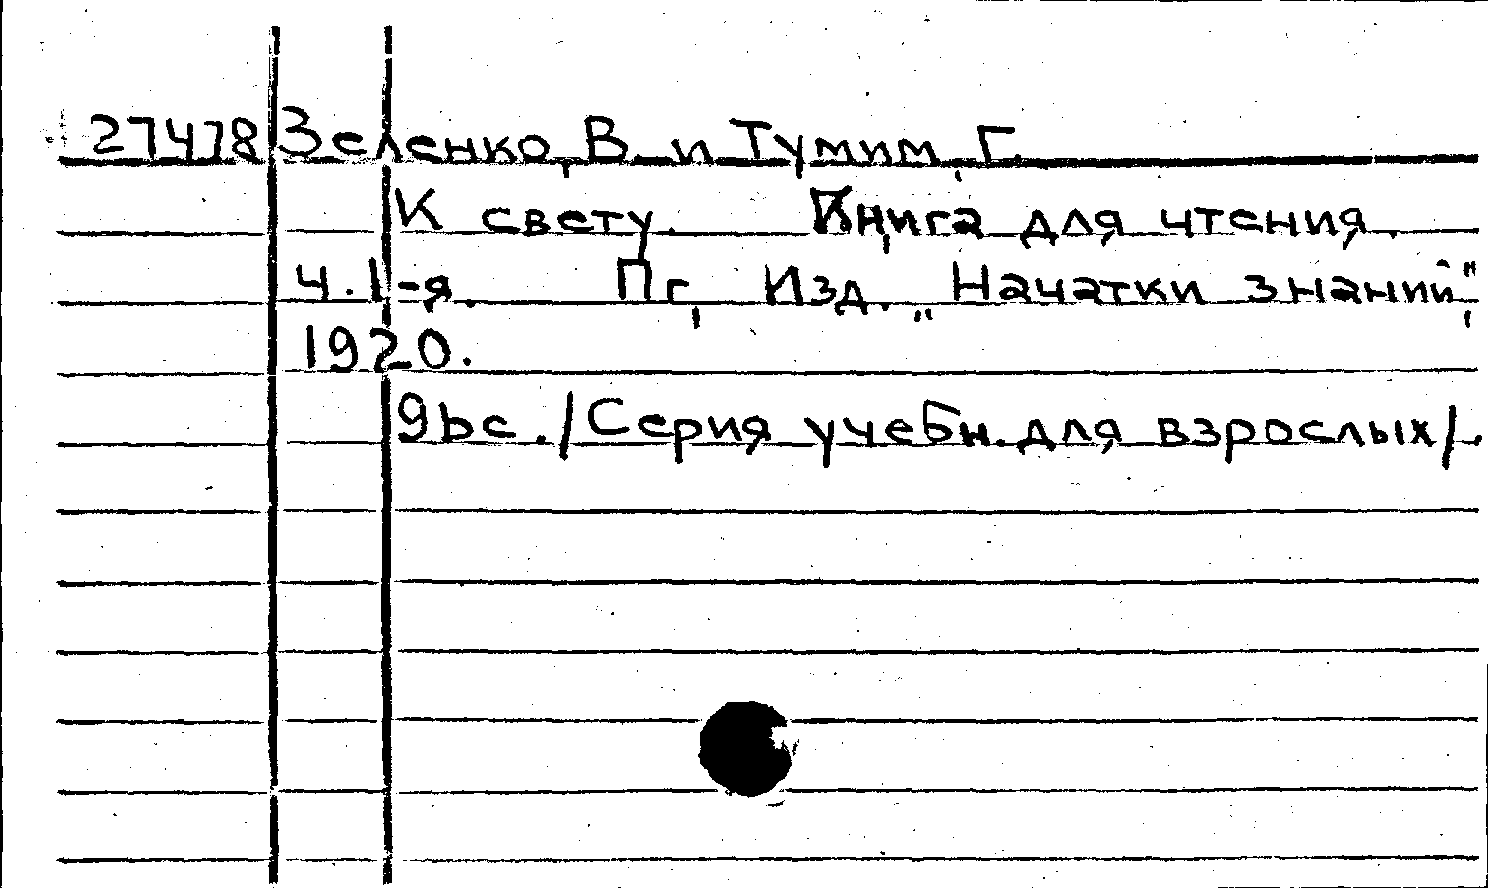 27478 Зеленко, В. и Тумим, Г.
К свету. Книга для чтения.
Ч. I-я. Пг, Изд. „Начатки знаний",
1920.
96с. /Серия учебн. для взрослых/.